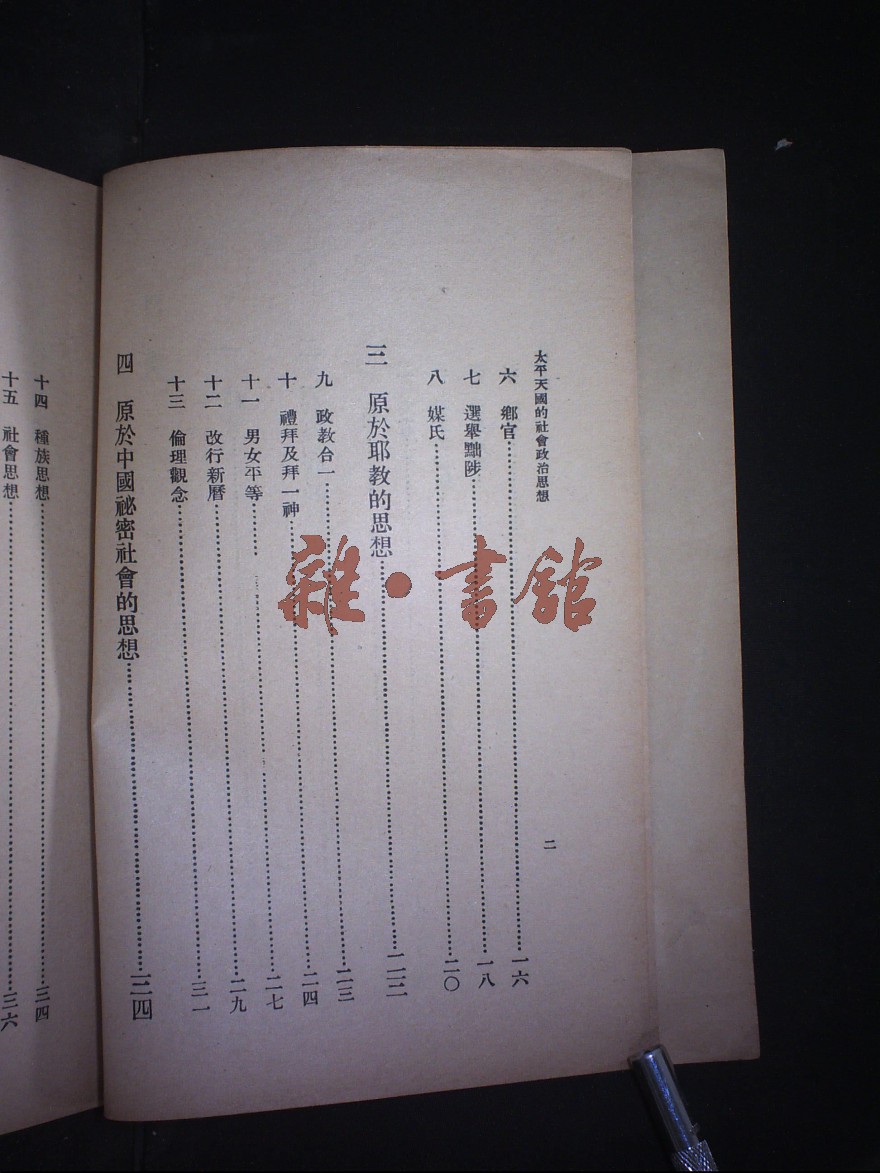 太平天國的社會政治思想
二
六 鄉官……一六
七 選舉黜陟……一八
八 媒氏……二〇
三 原於耶教的思想……二二
九 政教合一……二三
十 禮拜及拜一神……二四
十一 男女平等……二七
十二 改行新曆……二九
十三 倫理觀念……三一
四 原於中國祕密社會的思想……三四
十四 種族思想……三四
十五 社會思想……三六
雜·書館